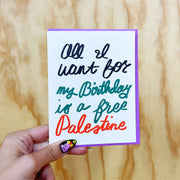 All I
want for
my Birthday
is a free
Palestine